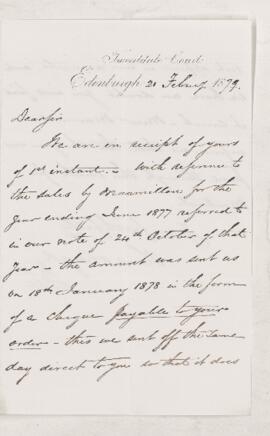 Institute Court
Edinburgh 21 Febry 1879.
Dear Sir
We are in receipt of yours
of 1st instant. – With reference to
the sales by Macmillan for the
year ending June 1877 referred to
in our note of 24th October of that
year – the amount was sent us
on 18th January 1878 in the form
of a cheque payable to your
order – this we sent off the same
day direct to you so that it does